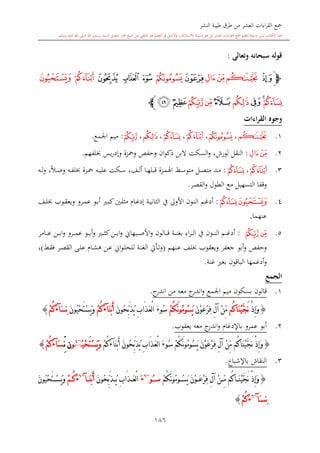 جمع القراءات العشر من طرق طيبة النشر
قوله سبحانه وتعالى :
﴿ وَإِذْ نَجَّيْنَاكُم مِّنْ ءَالِ فِرْعَوْنَ يَسُومُونَكُمْ سُوٓءَ الْعَذَابِ يُذَبِّحُونَ أَبْنَآءَكُمْ وَيَسْتَحْيُونَ
نِسَآءَكُمْ وَفِي ذَٰلِكُم بَلَآءٌ مِّن رَّبِّكُمْ عَظِيمٌ ﴿٤٩﴾ ﴾
وجوه القراءات
١. نَجَّيْنَاكُم، يَسُومُونَكُمْ، أَبْنَآءَكُمْ، نِسَآءَكُمْ، ذَٰلِكُم، رَّبِّكُمْ: ميم الجمع.
٢. مِّنْ ءَالِ: النقل لورش، والسكت لابن ذكوان وحفص وحمزة وإدريس بخلفهم.
٣. أَبْنَآءَكُمْ، نِسَآءَكُمْ: مد متصل متوسط الهمزة قبلها ألف، سكت عليه حمزة بخلفه وصلاً، وله
وقفا التسهيل مع الطول والقصر.
٤. وَيَسْتَحْيُونَ نِسَآءَكُمْ: أدغم النون الأولى في الثانية إدغام مثلين كبير أبو عمرو ويعقوب بخلف
عنهما.
٥. مِّن رَّبِّكُمْ: أدغم النون في الراء بغنة قالون والأصبهاني وابن كثير وأبو عمرو وابن عامر
وحفص وأبو جعفر ويعقوب بخلف عنهم (وتأتي الغنة للحلواني عن هشام على القصر فقط)،
وأدغمها الباقون بغير غنة.
الجمع
١. قالون بسكون ميم الجمع واندرج معه من اندرج.
﴿ وَإِذْ نَجَّيْنَاكُم مِّنْ ءَالِ فِرْعَوْنَ يَسُومُونَكُمْ سُوٓءَ الْعَذَابِ يُذَبِّحُونَ أَبْنَآءَكُمْ وَيَسْتَحْيُونَ نِسَآءَكُمْ ﴾
٢. أبو عمرو بالإدغام واندرج معه يعقوب.
﴿ وَإِذْ نَجَّيْنَاكُم مِّنْ ءَالِ فِرْعَوْنَ يَسُومُونَكُمْ سُوٓءَ الْعَذَابِ يُذَبِّحُونَ أَبْنَآءَكُمْ وَيَسْتَحْيُونَ نِسَآءَكُمْ ﴾
٣. النقاش بالإشباع.
﴿ وَإِذْ نَجَّيْنَاكُم مِّنْ ءَالِ فِرْعَوْنَ يَسُومُونَكُمْ سُوٓءَ الْعَذَابِ يُذَبِّحُونَ أَبْنَآءَكُمْ وَيَسْتَحْيُونَ
نِسَآءَكُمْ ﴾
١٨٦